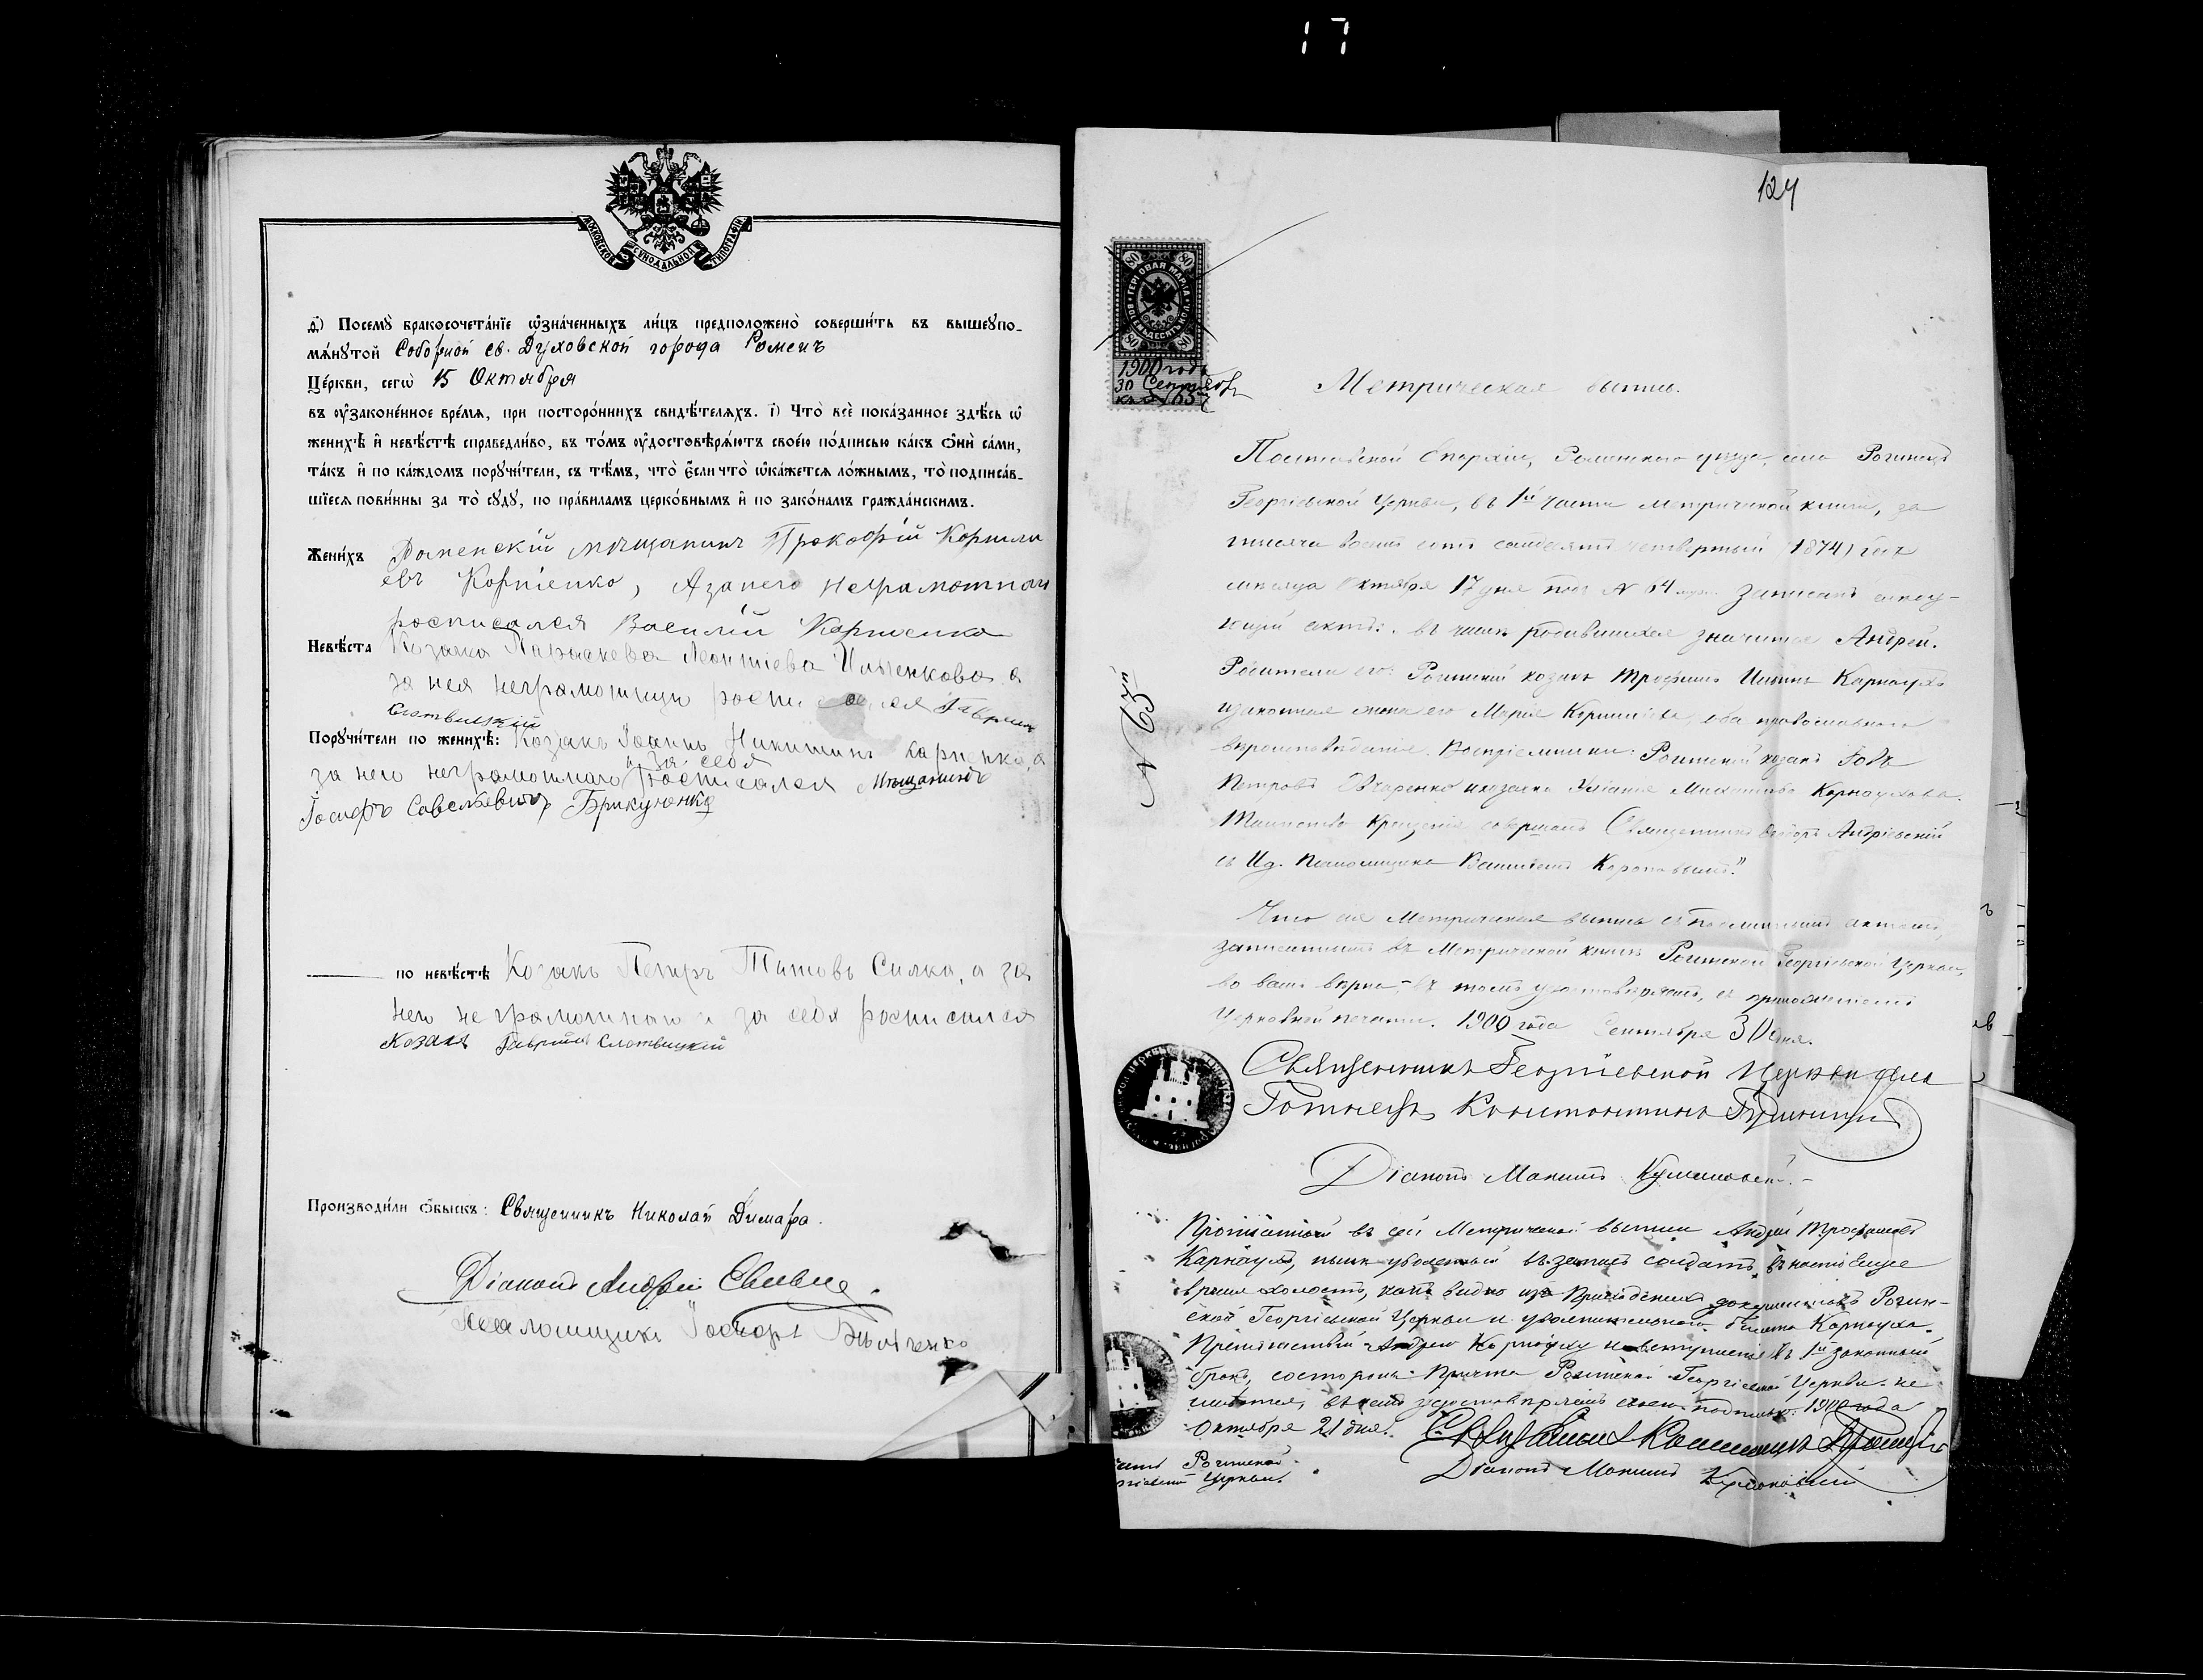 17
МОСКОВСКОЙ СУНОДАЛЬНОЙ ТИПОГРАФІИ
д҃) Посемꙋ̀ бракосочета́нїе ѡ҆зна́ченныхъ ли́цъ предположено̀ соверши́ть въ вышеꙋпо-
мѧ́нꙋтой Соборной св. Духовской города Роменъ
Це́ркви, сегѡ̀ 15 Октября
въ ᲂу҆зако́ненное вре́мѧ, при посторо́ннихъ свидѣ́телѧхъ. і҃) Что̀ всѐ пока́занное здѣ́сь ѡ҆
женихѣ̀ и҆ невѣ́стѣ справедли́во, въ то́мъ ᲂу҆достовѣрѧ́ютъ свое́ю по́дписью ка́къ ѻ҆нѝ са́ми,
та́къ и҆ по ка́ждомъ порꙋчи́тели, съ тѣ́мъ, что̀ є҆́сли что̀ ѡ҆ка́жетсѧ ло́жнымъ, то̀ подписа́в-
шїесѧ пови́нны за то̀ сꙋдꙋ̀, по пра́виламъ церко́внымъ и҆ по зако́намъ гражда́нскимъ.
Жени́хъ Роменскій мѣщанинъ Прокофій Корнили
евъ Корніенко, А за него неграмотнаго
росписался Василій Корніенко
Невѣ́ста Козачка Параскева Леонтіева Ильченкова а
за нея неграмотную росписался Гавріилъ
Слотвицкій
Порꙋчи́тели по женихѣ̀: Козакъ Іоаннъ Никитинъ Карпенко, а
и за себя
за него неграмотнаго росписался Мѣщанинъ
Іосифъ Савельевичъ
по невѣ́стѣ Козакъ Петръ Титовъ Силка, а за
него неграмотнаго и за себя росписался
Козакъ Гавріилъ Слотвицкій
Производи́ли ѻ҆́быскъ: Священникъ Николай Димара.
Діаконъ Андрей
Псаломщикъ
124
80 80
ГЕРБОВАЯ МАРКА ВОСЕМЬДЕСЯТЪ КОП.
80 80
1900 года
30 Сентября
Метрическая выпись.
Полтавской Епархіи, Роменскаго уѣзда, села Рогинецъ
Георгіевской Церкви, въ 1й части метрической книги, за
тысяча восемьсотъ семьдесятъ четвертый (1874) годъ
мѣсяца Октября 17 дня подъ № 64 записанъ слѣду-
ющій актъ: въ числѣ родившихся значится Андрей.
Родители его: Рогинскій козакъ Трофимъ Карнаухъ
и законная жена его Марія, оба православнаго
вѣроисповѣданія. Воспріемники: Рогинскій козакъ Іовъ
Петровъ Овчаренко и козачка Карнаухова.
Таинство крещенія совершалъ Священникъ Андріевскій
съ И.д. Псаломщика
Что сія Метрическая выпись съ подлиннымъ актомъ,
записаннымъ въ Метрической книгѣ Рогинской Георгіевской Церкви,
во всемъ вѣрна, въ томъ удостовѣряемъ, съ приложеніемъ
церковной печати. 1900 года Сентября 30 дня.
Священникъ Георгіевской Церкви села
Константинъ
Діаконъ Максимъ
Прописанный въ сей Метрической выписи Андрей Трофимовъ
Карнаухъ, нынѣ уволенный въ запасъ солдатъ, въ настоящее
время холостъ, какъ видно изъ Приходскихъ документовъ Рогин-
ской Георгіевской Церкви и увольнительнаго билета Карнауха.
Препятствій Андрею Карнауху на вступленіе въ 1й законный
бракъ, со стороны Причта Рогинской Георгіевской Церкви не
имѣется, въ чемъ удостовѣряемъ своею подписью. 1900 года
Октября 21 дня. Священникъ
Рогинской Діаконъ Максимъ
Церкви.